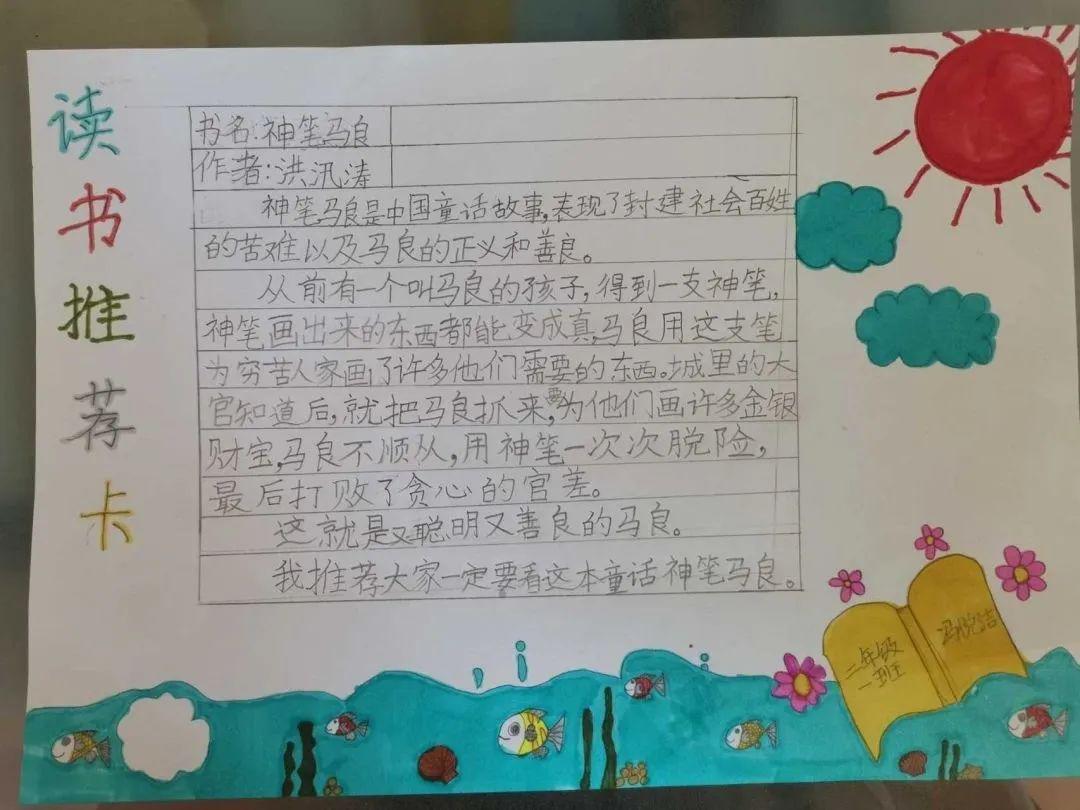 读书推荐卡
书名:神笔马良
作者:洪汛涛
神笔马良是中国童话故事,表现了封建社会百姓
的苦难以及马良的正义和善良。
从前有一个叫马良的孩子,得到一支神笔,
神笔画出来的东西都能变成真,马良用这支笔
为穷苦人家画了许多他们需要的东西。城里的大
官知道后,就把马良抓来,要为他们画许多金银
财宝,马良不顺从,用神笔一次次脱险,
最后打败了贪心的官差。
这就是又聪明又善良的马良。
我推荐大家一定要看这本童话神笔马良。
二年级
一班
冯悦洁